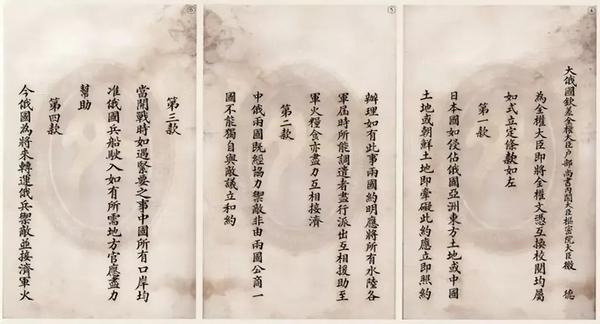 大俄國欽差全權大臣户部尚書内閣大臣樞密院大臣微　德
為全權大臣即將全權文憑互換校閲均屬
如式立定條款如左
第一款
日本國如侵佔俄國亞洲東方土地或中國
土地或朝鮮土地即牽礙此約應立即照約
辦理如有此事兩國約明應將所有水陸各
軍屆時所能調遣者盡行派出互相援助至
軍火糧食亦盡力互相接濟
第二款
中俄兩國既經協力禦敵非由兩國公商一
國不能獨自與敵議立和約
第三款
當開戰時如遇緊要之事中國所有口岸均
准俄國兵船駛入如有所需地方官應盡力
幫助
第四款
今俄國為將來轉運俄兵禦敵並接濟軍火